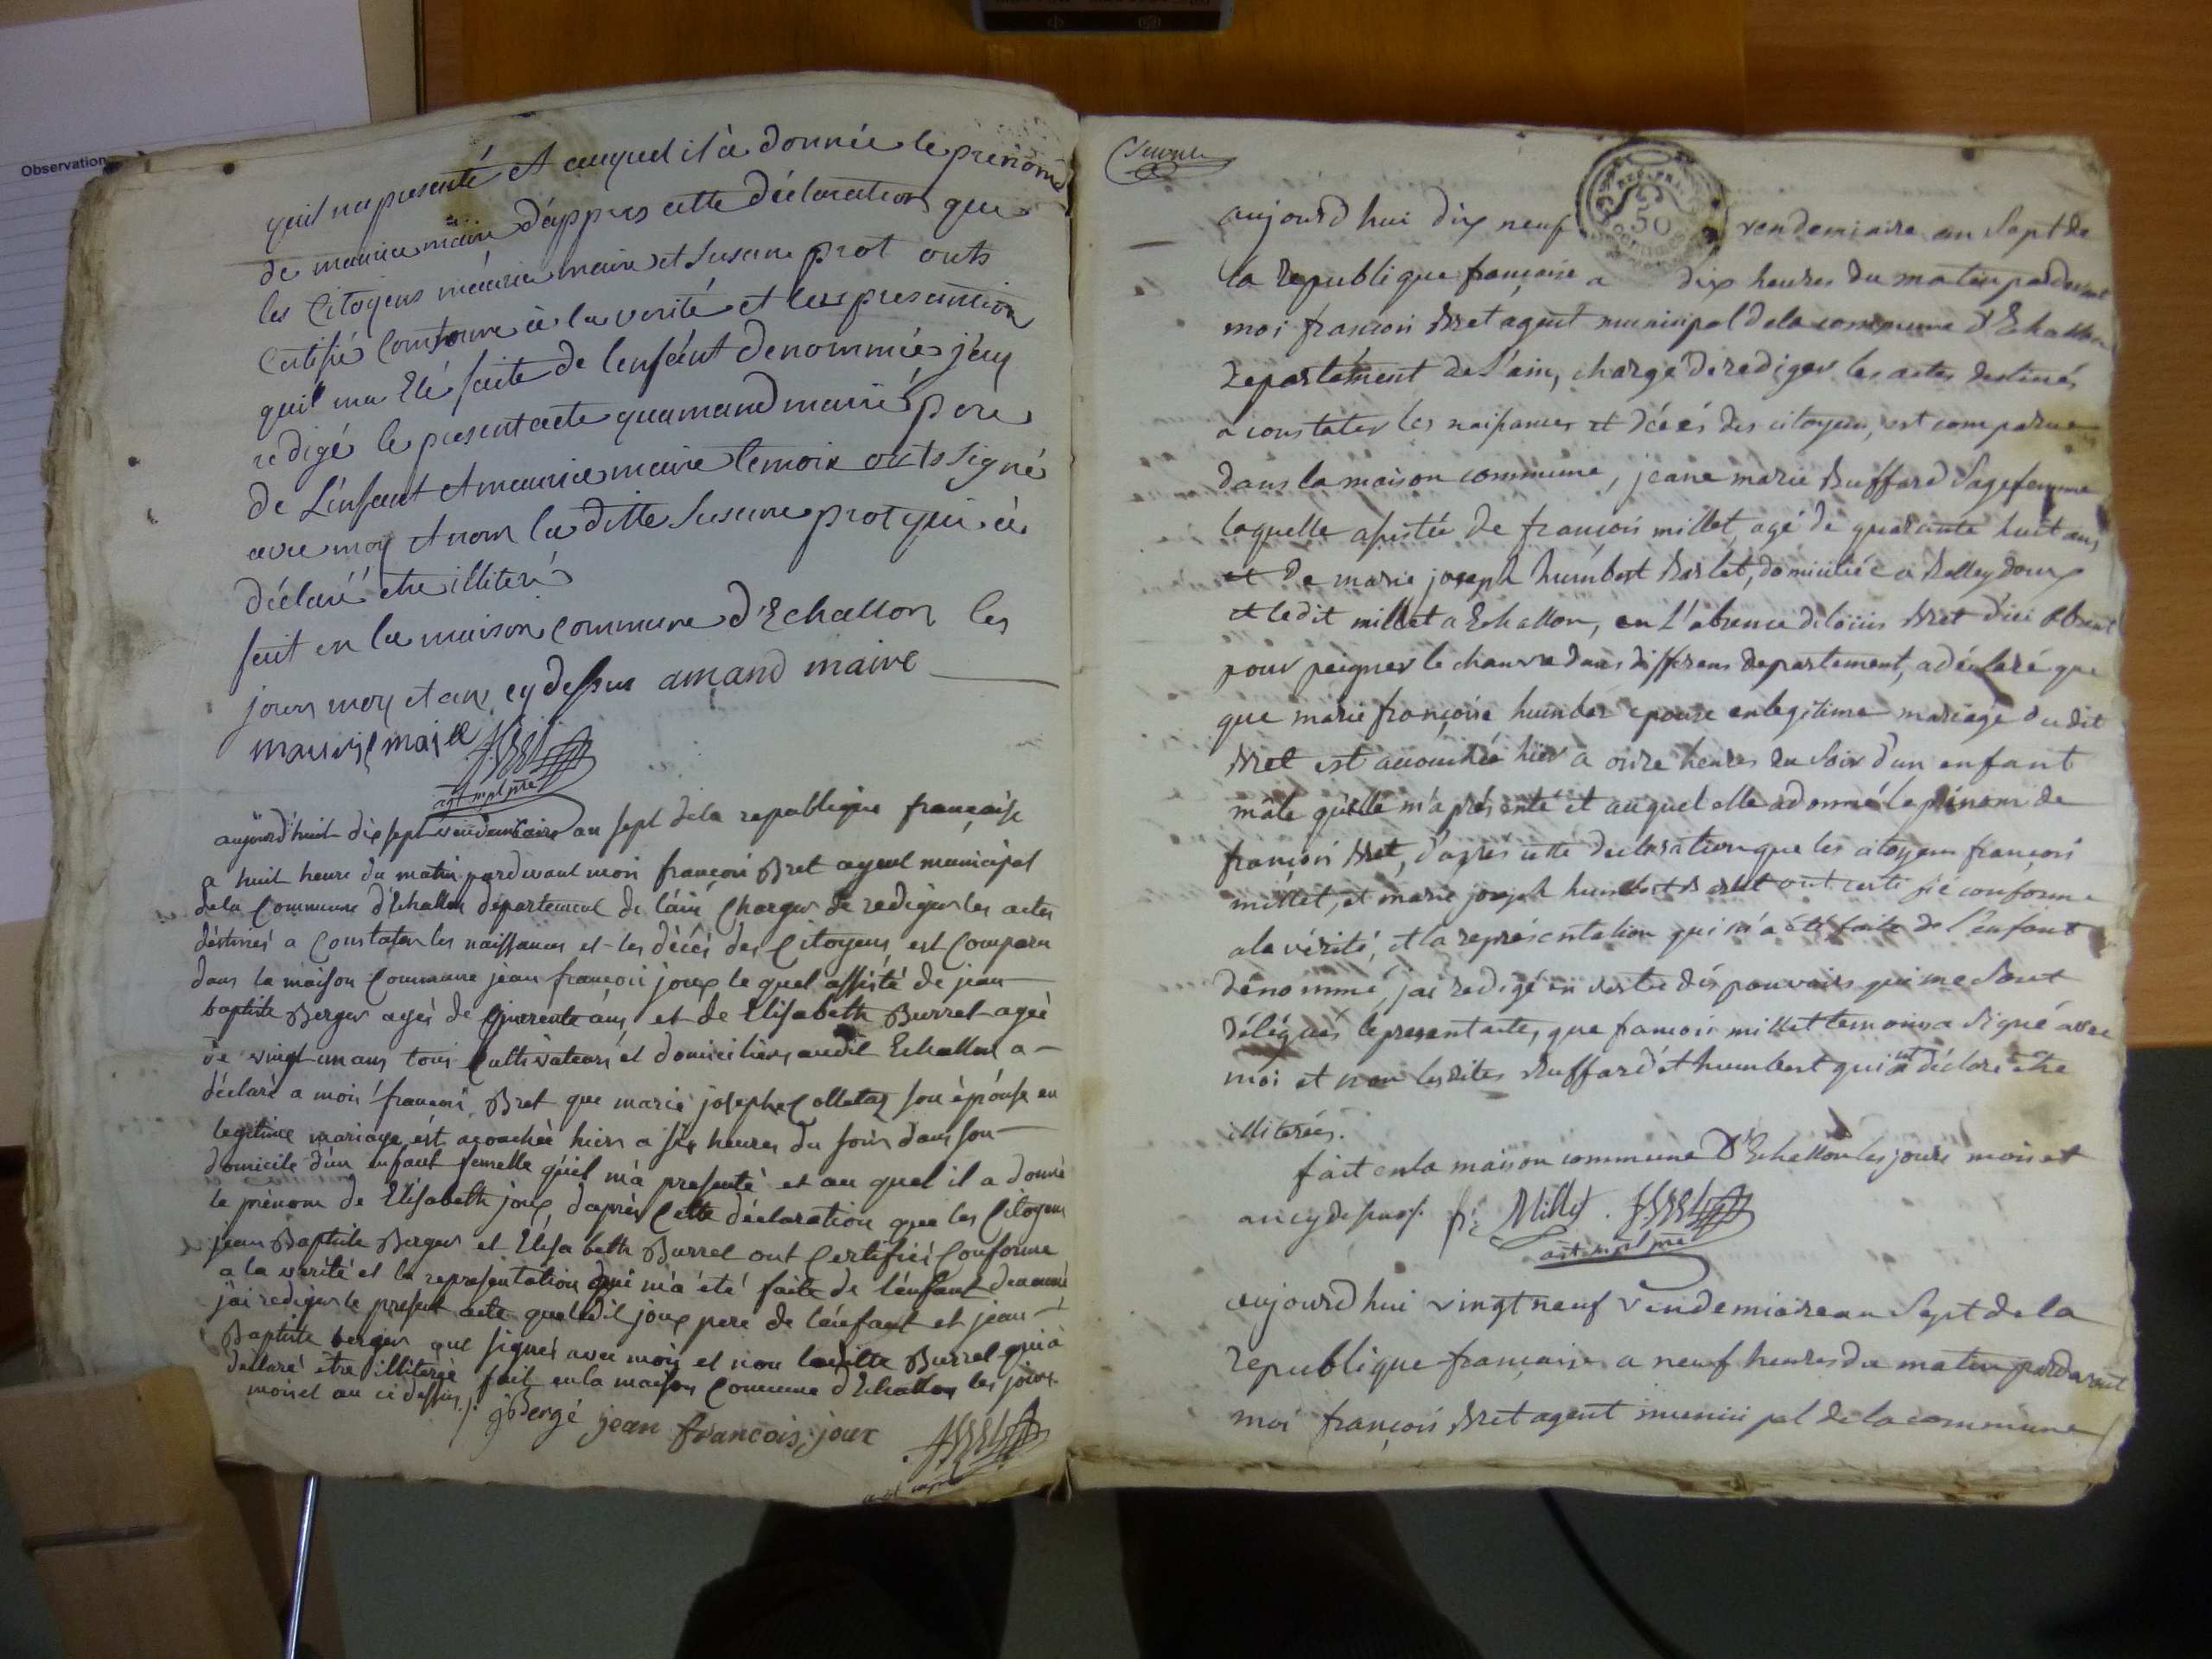 Observation
quil ma presenté et auquel il à donnée le prenom
de maurice maire d'apprès cette déclaration que
les Citoyens maurice maire et Susane prot onts
Certifié Conforme à la verité et la presantion
quil ma Eté faite de lenfánt denommé j'ay
redigé le present acte quamand maire pere
de L'enfant et maurice maire temoix onts signé
avec moy et non la ditte Susane prot qui à
déclaré etre illiteré
fait en la maison commune d'Echallon les
jours moy et an cy dessus amand maire
maurise maire FBret
agt mpl pre
aujourd'huit dix sept vendemiaire an sept de la republique française
a huit heure du matin pardevant moi françois Bret agent municipal
dela Commune d'Echallon département de l'ain Charger de rediger les actes
déstinés a Constater les naissances et les décès des Citoyens, est Comparu
dans la maison Commune jean françois joux le quel assisté de jean
baptiste Berger agés de quarente ans et de Elisabeth Burret ageé
de vingt un ans tous Cultivateurs et domiciliers audit Echallon a
déclaré a moi françois Bret que marie josephe Colletaz son épouse en
legitime mariage est acouchée hier a six heures du soir dans son
domicile d'un enfant femelle qu'il m'à presenté et au quel il a donné
le prénom de Elisabeth joux, d'après Cette déclaration que les Citoyens
jean Baptiste Berger et Elisabeth Burret ont Certifiés Conforme
a la verité et la representation qui m'a été faite de lénfant denommé
j'ai rediger le present acte que ledit joux pere de lénfant et jean
Baptiste berger ont signés avec moy et non laditte Burret qui à
declaré être illiterée fait en la maison Commune d'Echallon les jours
mois et an ci dessus ./.
jBBergé jean francois joux FBret
agt mpl
aujourd hui dix neuf vendemiaire an Sept de
50
la republique française a dix heures du matin pardevant
moi françois Bret agent municipal de la commune d'Echallon
Departément de L'ain, chargé de rediger les actes destinés
a constater les naissances et décès des citoyens, est comparue
dans la maison commune, jeane marie Buffard Sagefemme
laquelle assistée de françois millet, agé de quarante huit ans
et de marie joseph humbert Barlet, domiciliée a Belleydoux
et ledit millet a Echallon, en L'absence de loüis Bret d'ici absent
pour peigner le chanvre dans differens departement, a déclaré que
que marie françoise humbert epouse en legitime mariage du dit
Bret est accouchée hier a onze heures du Soir d'un enfant
mâle qu'elle m'a présenté et auquel elle a donné le prénom de
françois Bret, d'après cette declaration que les citoyens françois
millet, et marie joseph humbert Barlet ont certifié conforme
a la vérité, et la représentation qui m'a été faite de l'enfant
dénommé, jai redigé en vertu dés pouvoirs qui me Sont
délégués le present acte, que francois millet temoins a Signé avec
moi et non lesdites Buffard et humbert qui ont déclaré etre
illiterées.
fait en la maison commune d'Echallon les jours mois et
an cy dessus ./. fs Millet . FBret
agt mpl pre
aujourd hui vingt neuf vendemiaire an Sept de la
republique francaise a neuf heures du matin pardevant
moi françois Bret agent municipal de la commune